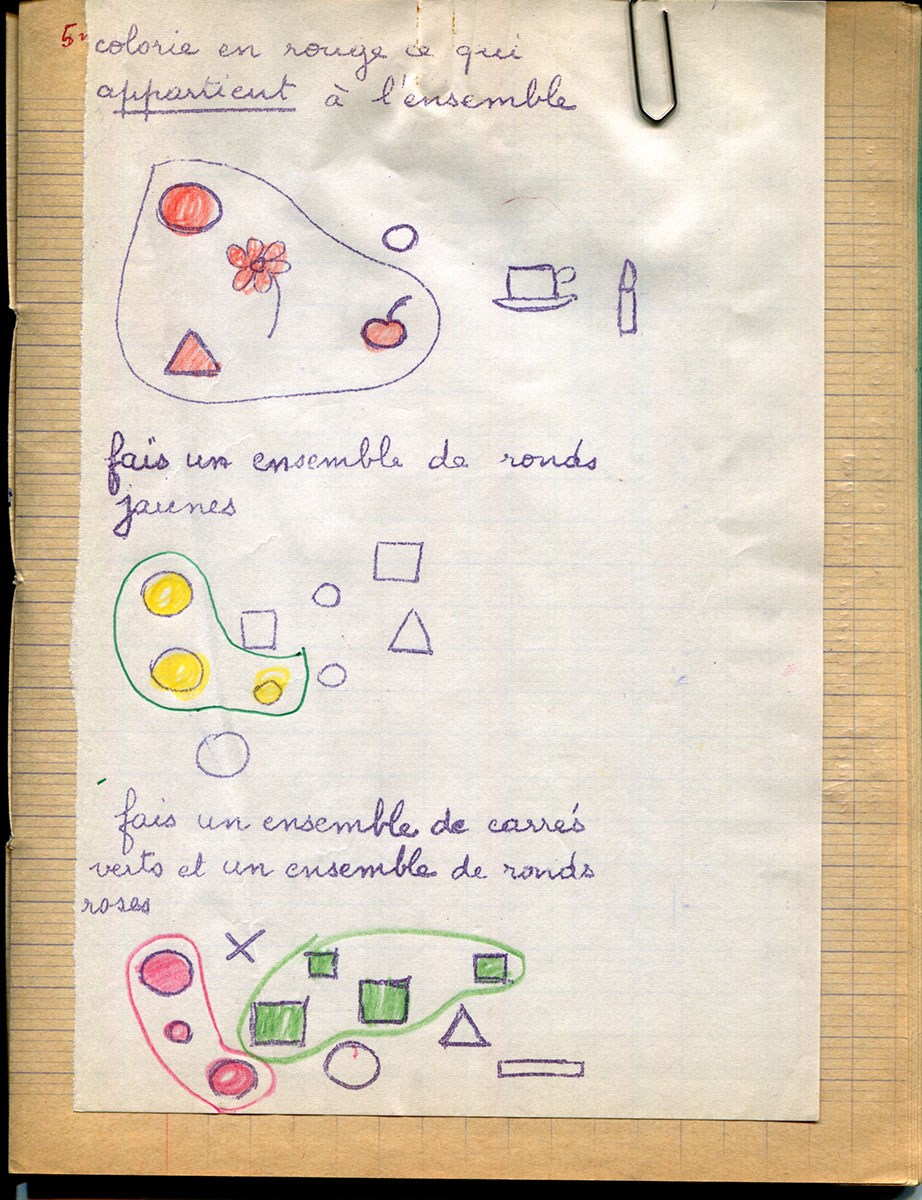 5
colorie en rouge ce qui
appartient à l'ensemble
fais un ensemble de ronds
jaunes
fais un ensemble de carrés
verts et un ensemble de ronds
roses